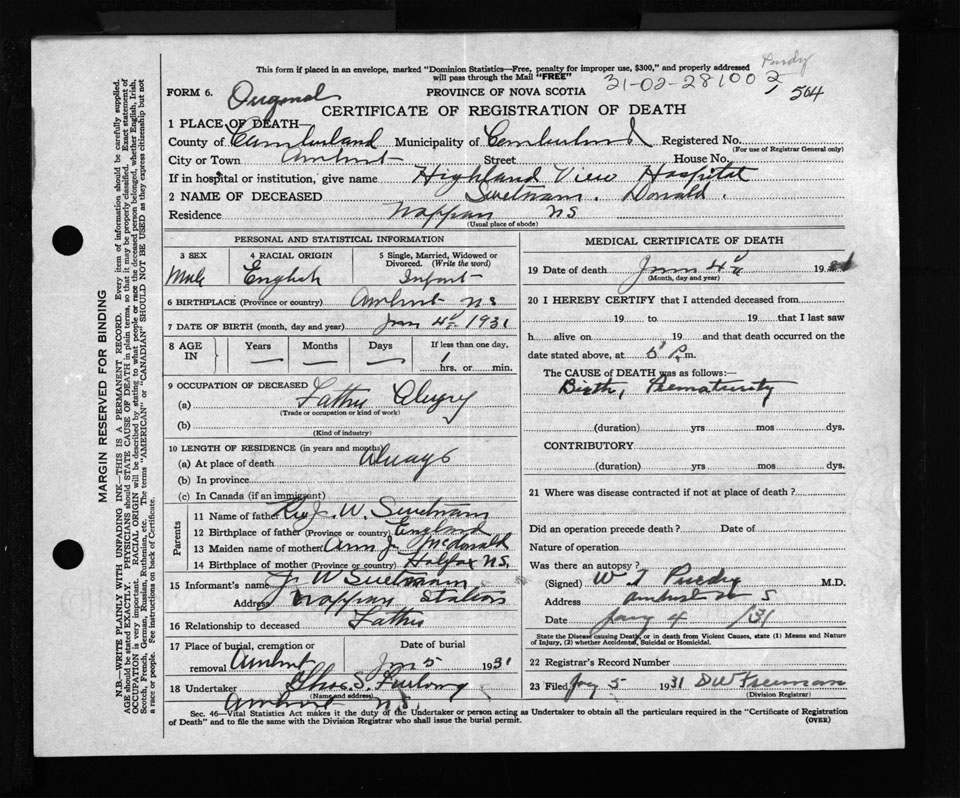 Purdy
This form if placed in an envelope, marked "Dominion Statistics—Free, penalty for improper use, $300," and properly addressed
will pass through the Mail "FREE"
31-02-281002
504
FORM 6. Original
PROVINCE OF NOVA SCOTIA
CERTIFICATE OF REGISTRATION OF DEATH
1 PLACE OF DEATH—
County of Cumberland Municipality of Cumberland Registered No.
(For use of Registrar General only)
City or Town Amherst Street House No.
If in hospital or institution, give name Highland View Hospital
2 NAME OF DECEASED Swetnam. Donald.
Residence Nappan NS
(Usual place of abode)
PERSONAL AND STATISTICAL INFORMATION
3 SEX 4 RACIAL ORIGIN 5 Single, Married, Widowed or Divorced. (Write the word)
Male English Infant
6 BIRTHPLACE (Province or country) Amherst NS
7 DATE OF BIRTH (month, day and year) Jan 4th 1931
8 AGE IN Years Months Days If less than one day,
— — — 1 hrs. or min.
9 OCCUPATION OF DECEASED
(a) Father Clergy
(Trade or occupation or kind of work)
(b)
(Kind of industry)
10 LENGTH OF RESIDENCE (in years and months)
(a) At place of death Always
(b) In province
(c) In Canada (if an immigrant)
Parents
11 Name of father Rev J. W. Swetnam
12 Birthplace of father (Province or country) England
13 Maiden name of mother Ann J McDonald
14 Birthplace of mother (Province or country) Halifax N.S.
15 Informant's name J W Swetnam
Address Nappan Station
16 Relationship to deceased Father
17 Place of burial, cremation or Date of burial
removal Amherst Jan 5 1931
18 Undertaker Chas. S. Furlong
(Name and address)
Amherst N.S.
MEDICAL CERTIFICATE OF DEATH
19 Date of death Jan 4th 1931
(Month, day and year)
20 I HEREBY CERTIFY that I attended deceased from
19 to 19 that I last saw
h alive on 19 and that death occurred on the
date stated above, at P.m.
The CAUSE of DEATH was as follows:—
Birth, Prematurity
(duration) yrs mos dys.
CONTRIBUTORY
(duration) yrs mos dys.
21 Where was disease contracted if not at place of death?
Did an operation precede death? Date of
Nature of operation
Was there an autopsy?
(Signed) W T Purdy M.D.
Address Amherst N S
Date Jany 4 /31
State the Disease causing Death, or in death from Violent Causes, state (1) Means and Nature
of Injury, (2) whether Accidental, Suicidal or Homicidal.
22 Registrar's Record Number
23 Filed Jany 5 1931 D W Freeman
(Division Registrar)
Sec. 46—Vital Statistics Act makes it the duty of the Undertaker or person acting as Undertaker to obtain all the particulars required in the "Certificate of Registration
of Death" and to file the same with the Division Registrar who shall issue the burial permit.
(OVER)
MARGIN RESERVED FOR BINDING
N.B.—WRITE PLAINLY WITH UNFADING INK—THIS IS A PERMANENT RECORD. Every item of information should be carefully supplied.
AGE should be stated EXACTLY. PHYSICIANS should STATE CAUSE OF DEATH in plain terms, so that it may be properly classified. Exact statement of
OCCUPATION is very important. RACIAL ORIGIN will be described by stating to what people or race the deceased person belonged, whether English, Irish,
Scotch, French, German, Russian, Ruthenian, etc. The terms "AMERICAN" or "CANADIAN" SHOULD NOT BE USED as they express citizenship but not
a race or people. See instructions on back of Certificate.